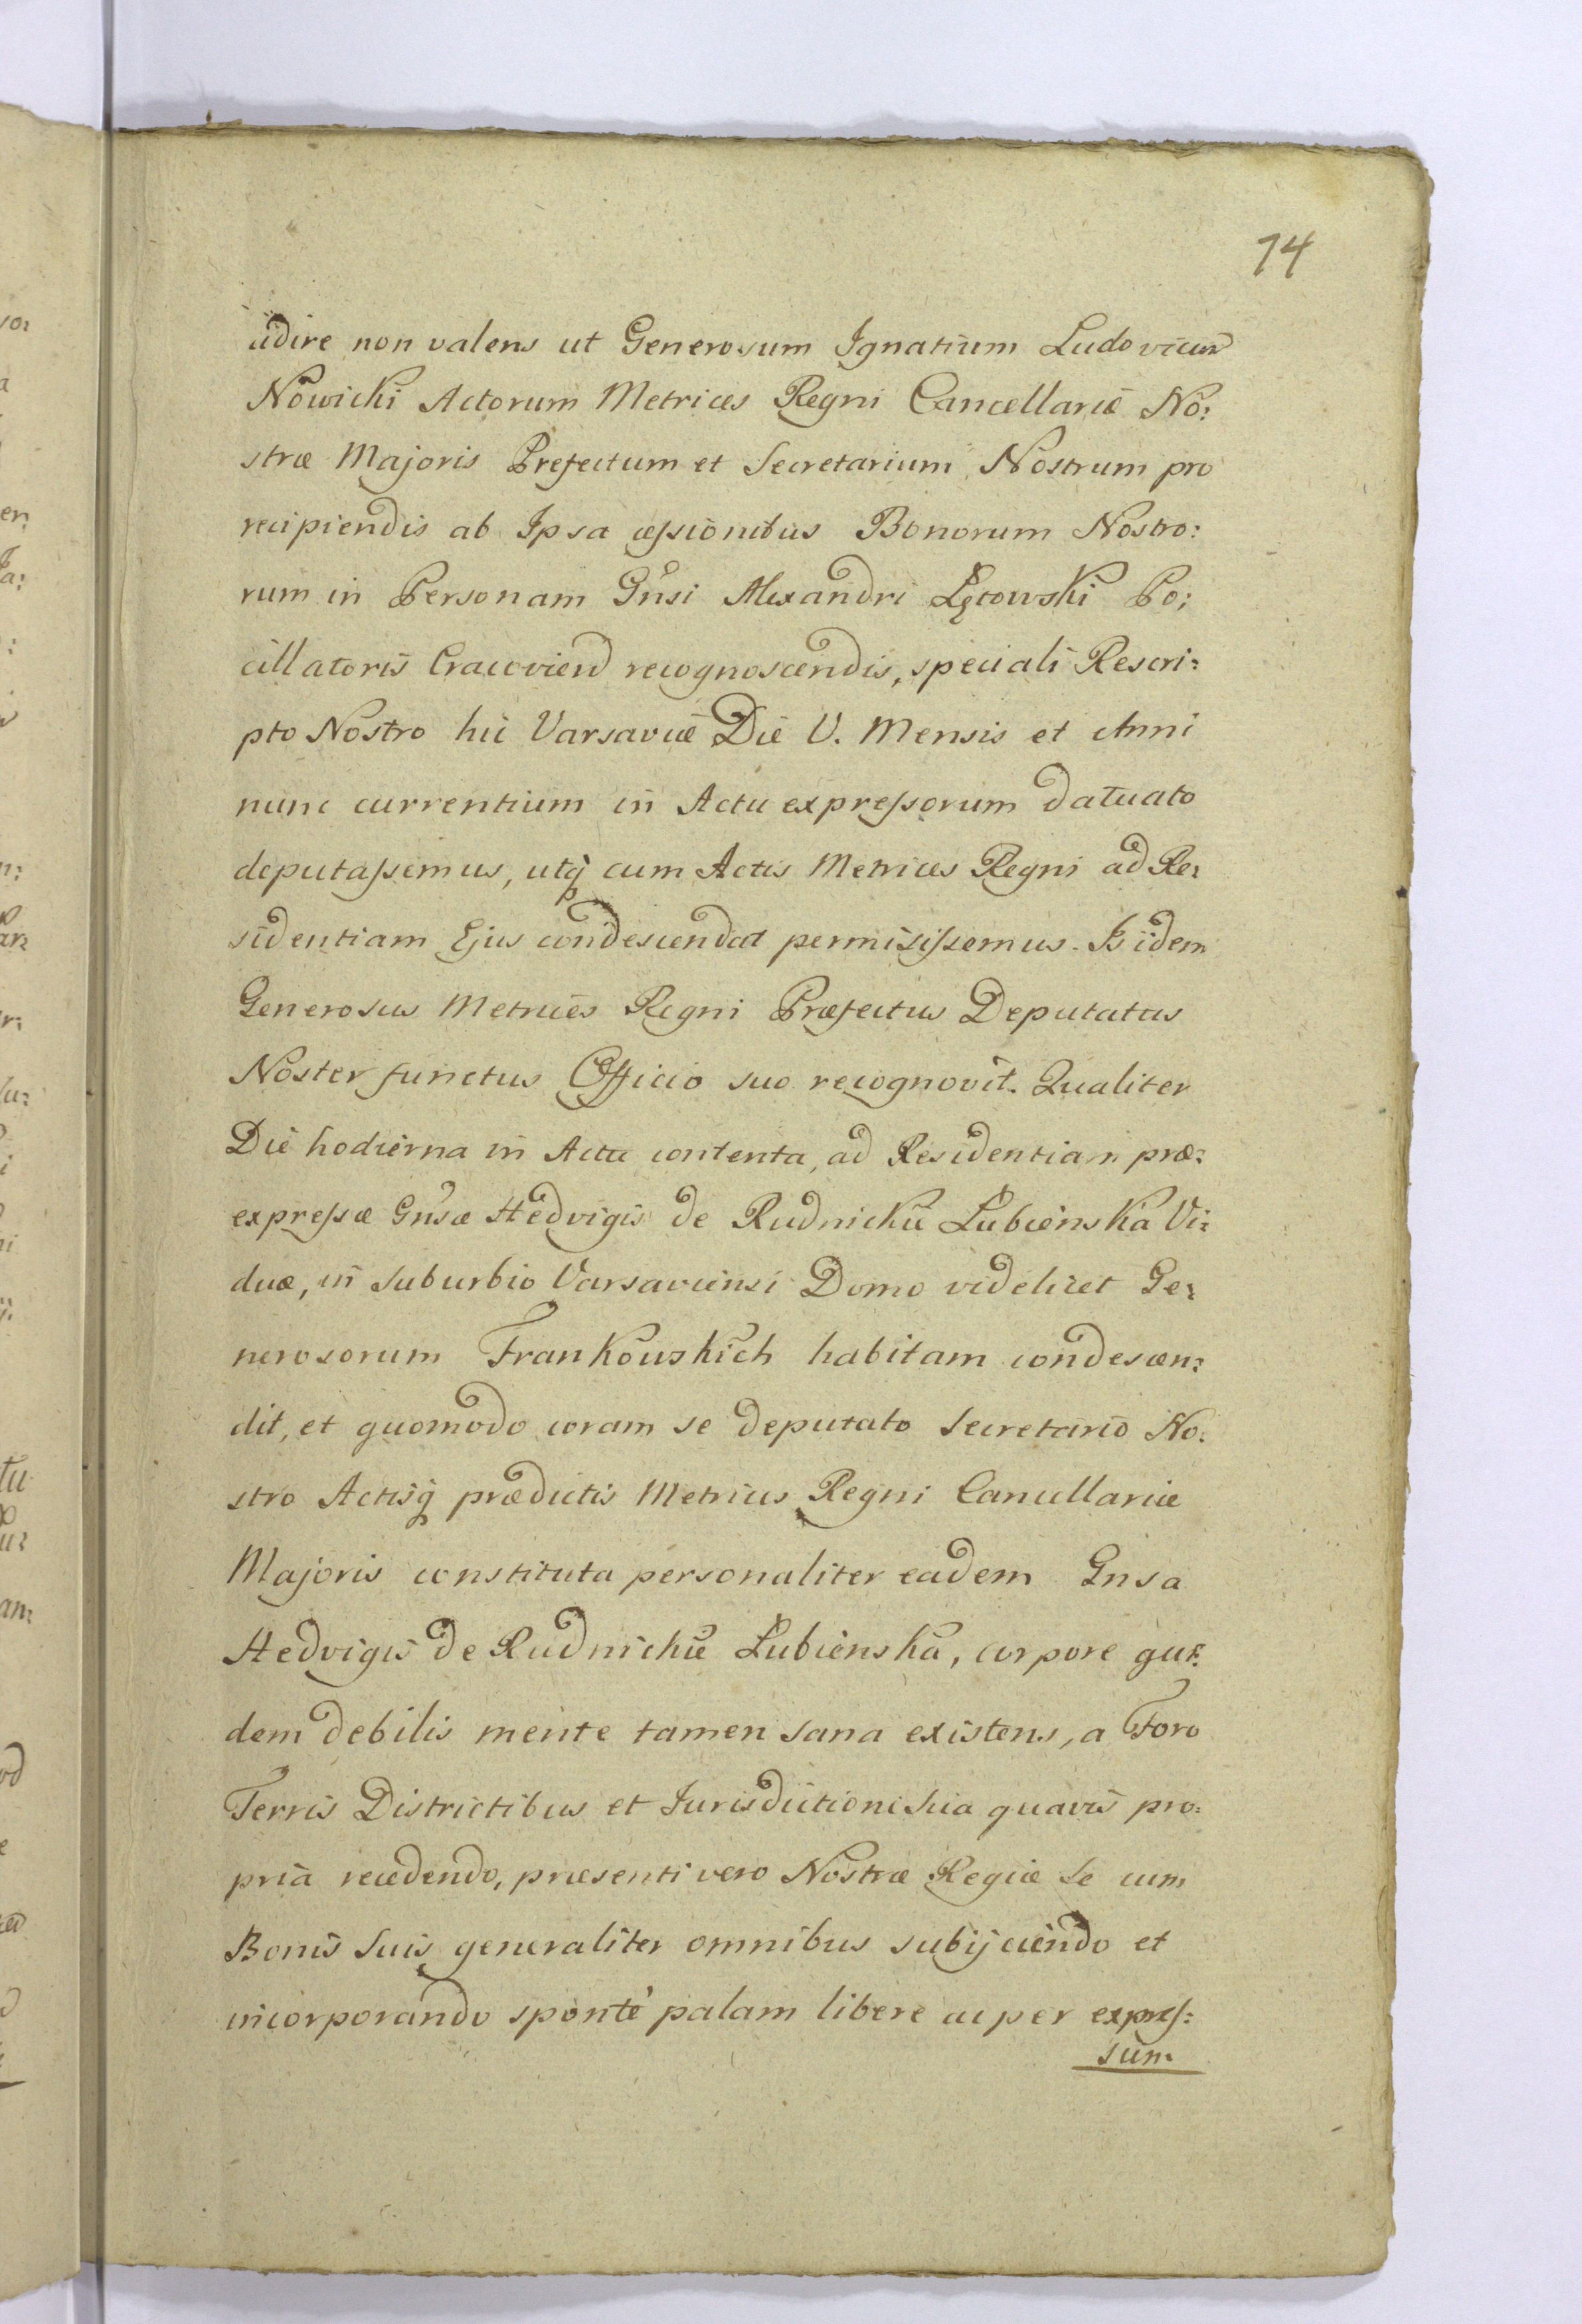 74
adire non valens ut Generosum Ignatium Ludovicum
Nowicki Actorum Metrices Regni Cancellariæ No:
stræ Majoris Prefectum et Secretarium Nostrum pro
recipiendis ab Ipsa cessionibus Bonorum Nostro:
rum in Personam Gnsi Alexandri Łętowski Po:
cillatoris Cracovien recognoscendis, speciali Rescri:
pto Nostro hic Varsaviæ Die V. Mensis et Anni
nunc currentium in Actu expressorum datuato
deputassemus, utq cum Actis Metrices Regni ad Re:
sidentiam Ejus condescendat permisissemus. Is idem
Generosus Metrices Regni Præfectus Deputatus
Noster functus Officio suo recognovit. Qualiter
Die hodierna in Actu contenta, ad Residentiam præ:
expressæ Gnsæ Hedvigis de Rudnickie Łubienska Vi:
duæ, in Suburbio Varsaviensi Domo videlicet Ge:
nerosorum Frankowskich habitam condescen:
dit, et quomodo coram se deputato Secretario No:
stro Actisq prædictis Metrices Regni Cancellariæ
Majoris constituta personaliter eadem Gnsa
Hedvigis de Rudnickie Łubienska, corpore qui:
dem debilis mente tamen sana existens, a Foro
Terris Districtibus et Jurisdictioni sua quavis pro:
pria recedendo, præsenti vero Nostræ Regiæ Se cum
Bonis Suis generaliter omnibus subijciendo et
incorporando sponte palam libere ac per expres:
sum